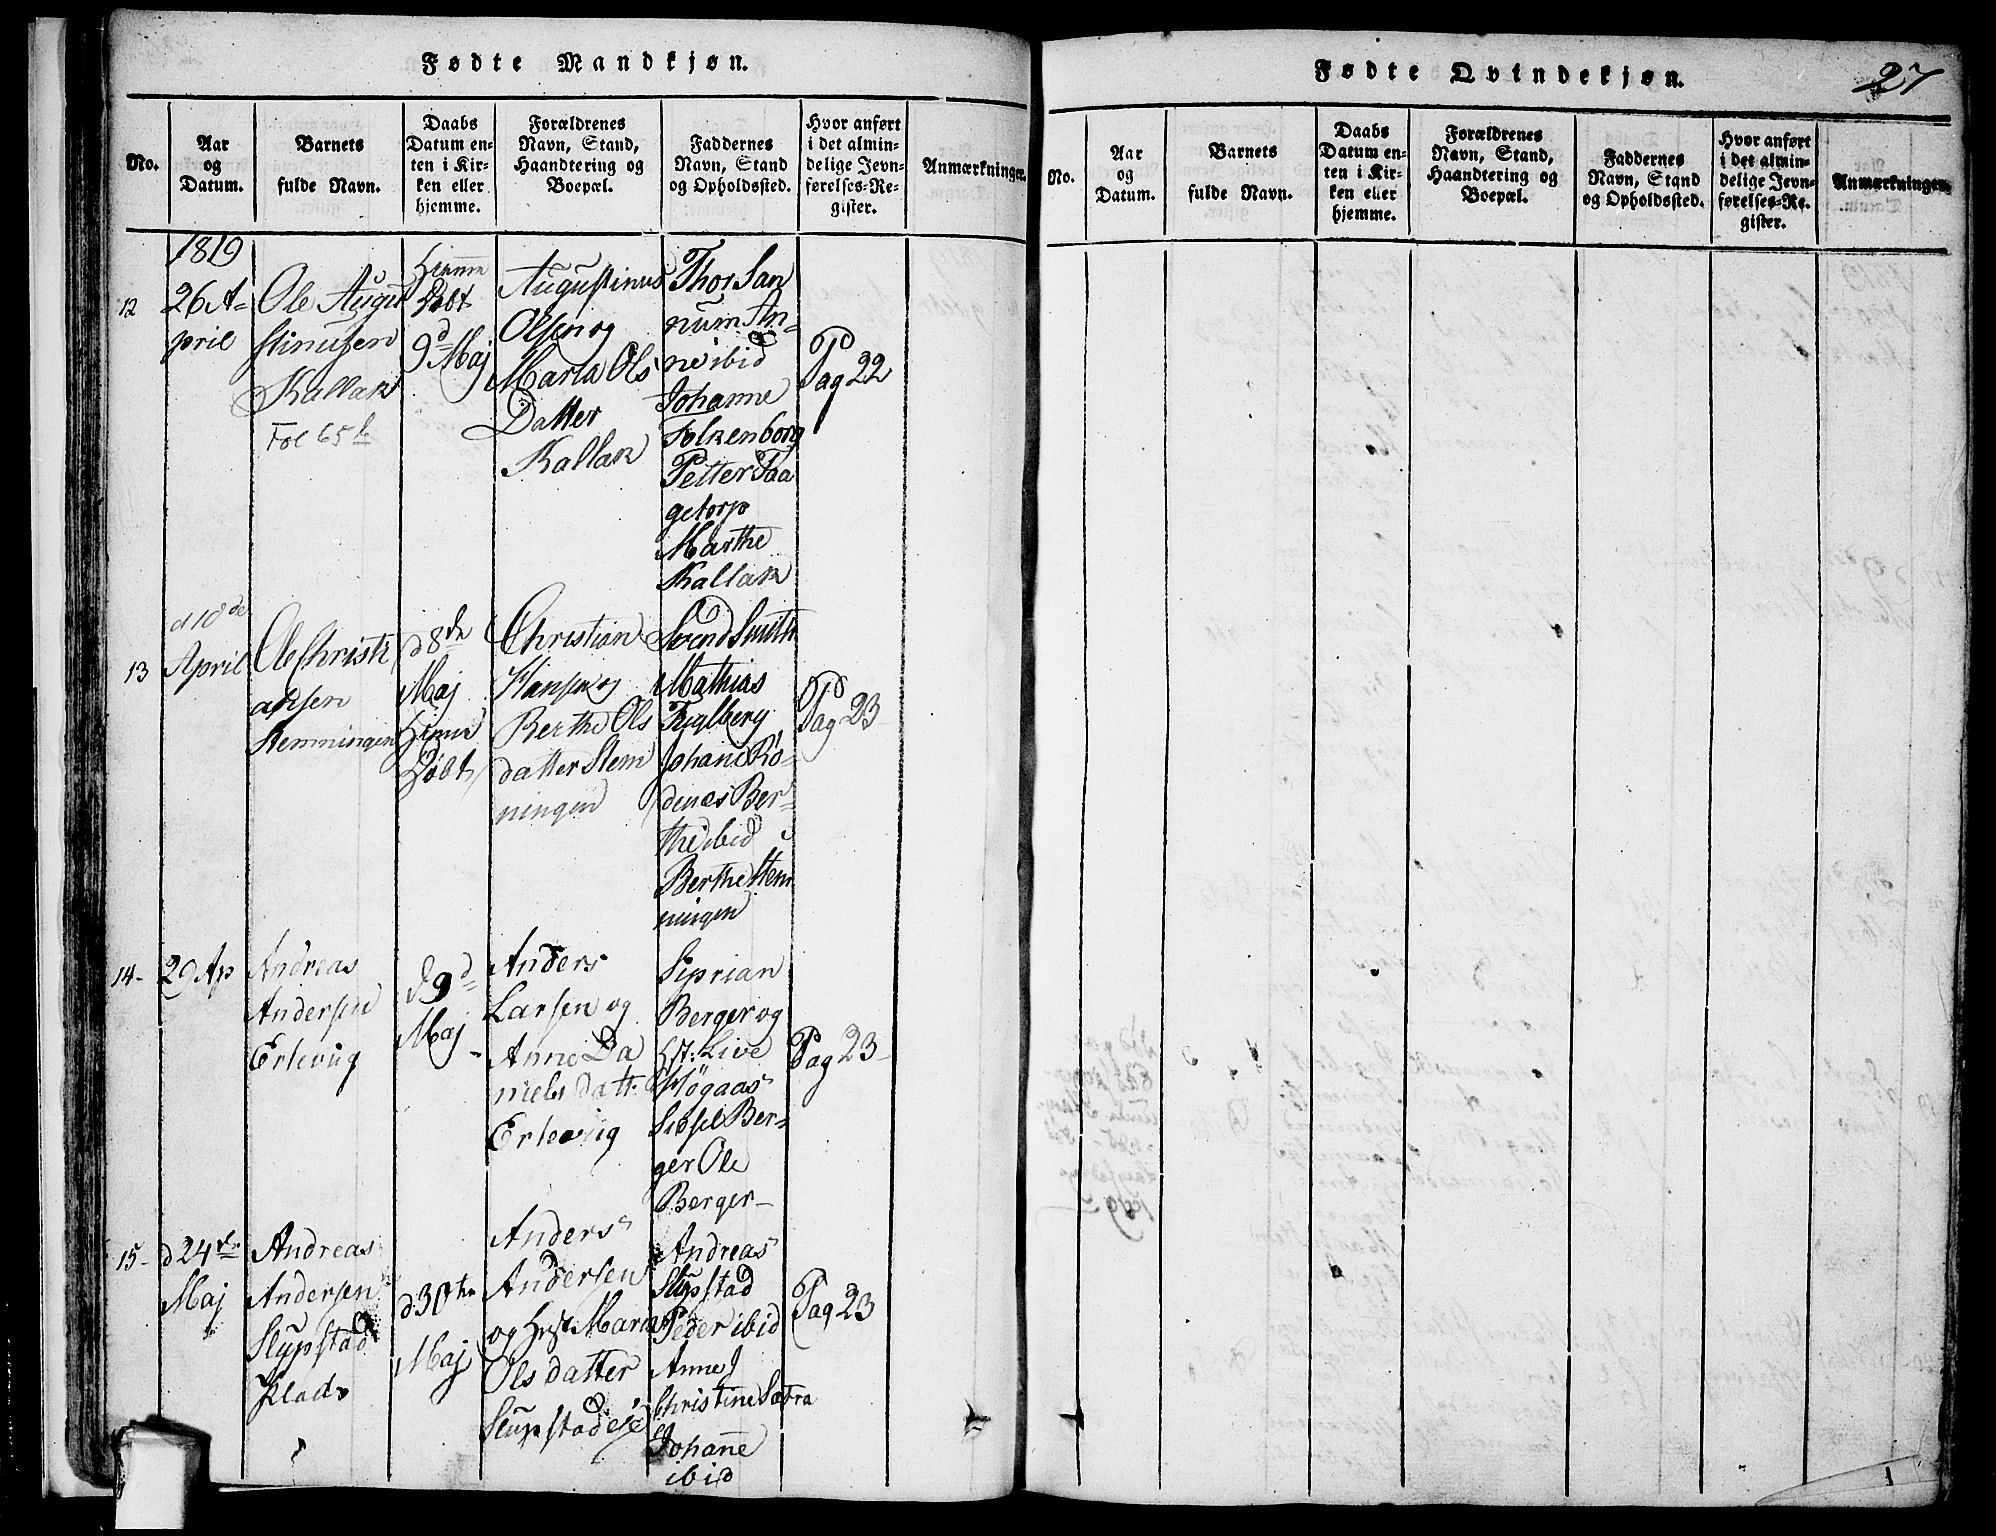 Fødte Mandkjøn.
No.
Aar
og
Datum.
Barnets
fulde Navn.
Daabs
Datum en-
ten i Kir-
ken eller
hjemme.
Forældrenes
Navn, Stand,
Haandtering og
Boepæl.
Faddernes
Navn, Stand
og Opholdssted.
Hvor anført
i det almin-
delige Jevn-
førelses-Re-
gister.
Anmærkninger.
1819
12
26 A-
pril
Ole Augu
stinusen
Kallak
Fol 65 b
Hjemme
Døbt
9d Maj
Augustinus
Olsen og
Maria Ols
Datter
Kallak
Thor San
num An-
ne ibid
Johanne
Folkenborg
Petter Taa
getorp
Marthe
Kallak
Pag 22
13
d 10de
April
Ole Christi
ansen
Slemmingen
d 8de
Maj
Hjemme
Døbt
Christian
Hansen og
Berthe Ols
datter Slem
ningen
Svend Smith
Mathias
Fuglberg
Johane Rø-
denæs Ber-
the ibid
Berthe Slem
ningen
Pag 23
14-
29 Ap
Andreas
Andersen
Ertevug
d 9d
Maj
Anders
Larsen og
Anne Da
niels Datt:
Ertevug
Siprian
Berger og
Hst: Live
Høgaas
Sidsel Ber-
ger Ole
Berger-
Pag 23
15-
d 24de
Maj
Andreas
Andersen
Slypstad
Plads
d 30te
Maj
Anders
Andersen
og Hust Maria
Olsdatter
Slupstadeje
Andreas
Slypstad
Peder ibid
Anne
Christine Sætra
Johanne
ibid
Pag 23
Fødte Qvindekjøn.
27
No.
Aar
og
Datum.
Barnets
fulde Navn.
Daabs
Datum en-
ten i Kir-
ken eller
hjemme.
Forældrenes
Navn, Stand,
Haandtering og
Boepæl.
Faddernes
Navn, Stand
og Opholdssted.
Hvor anført
i det almin-
delige Jevn-
førelses-Re-
gister.
Anmærkninger.